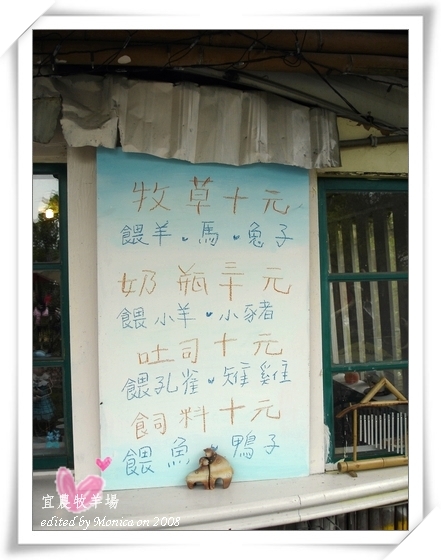 牧草十元
餵羊．馬．兔子
奶瓶三十元
餵小羊．小豬
吐司十元
餵孔雀．雉雞
飼料十元
餵魚 鴨子
宜農牧羊場
edited by Monica on 2008